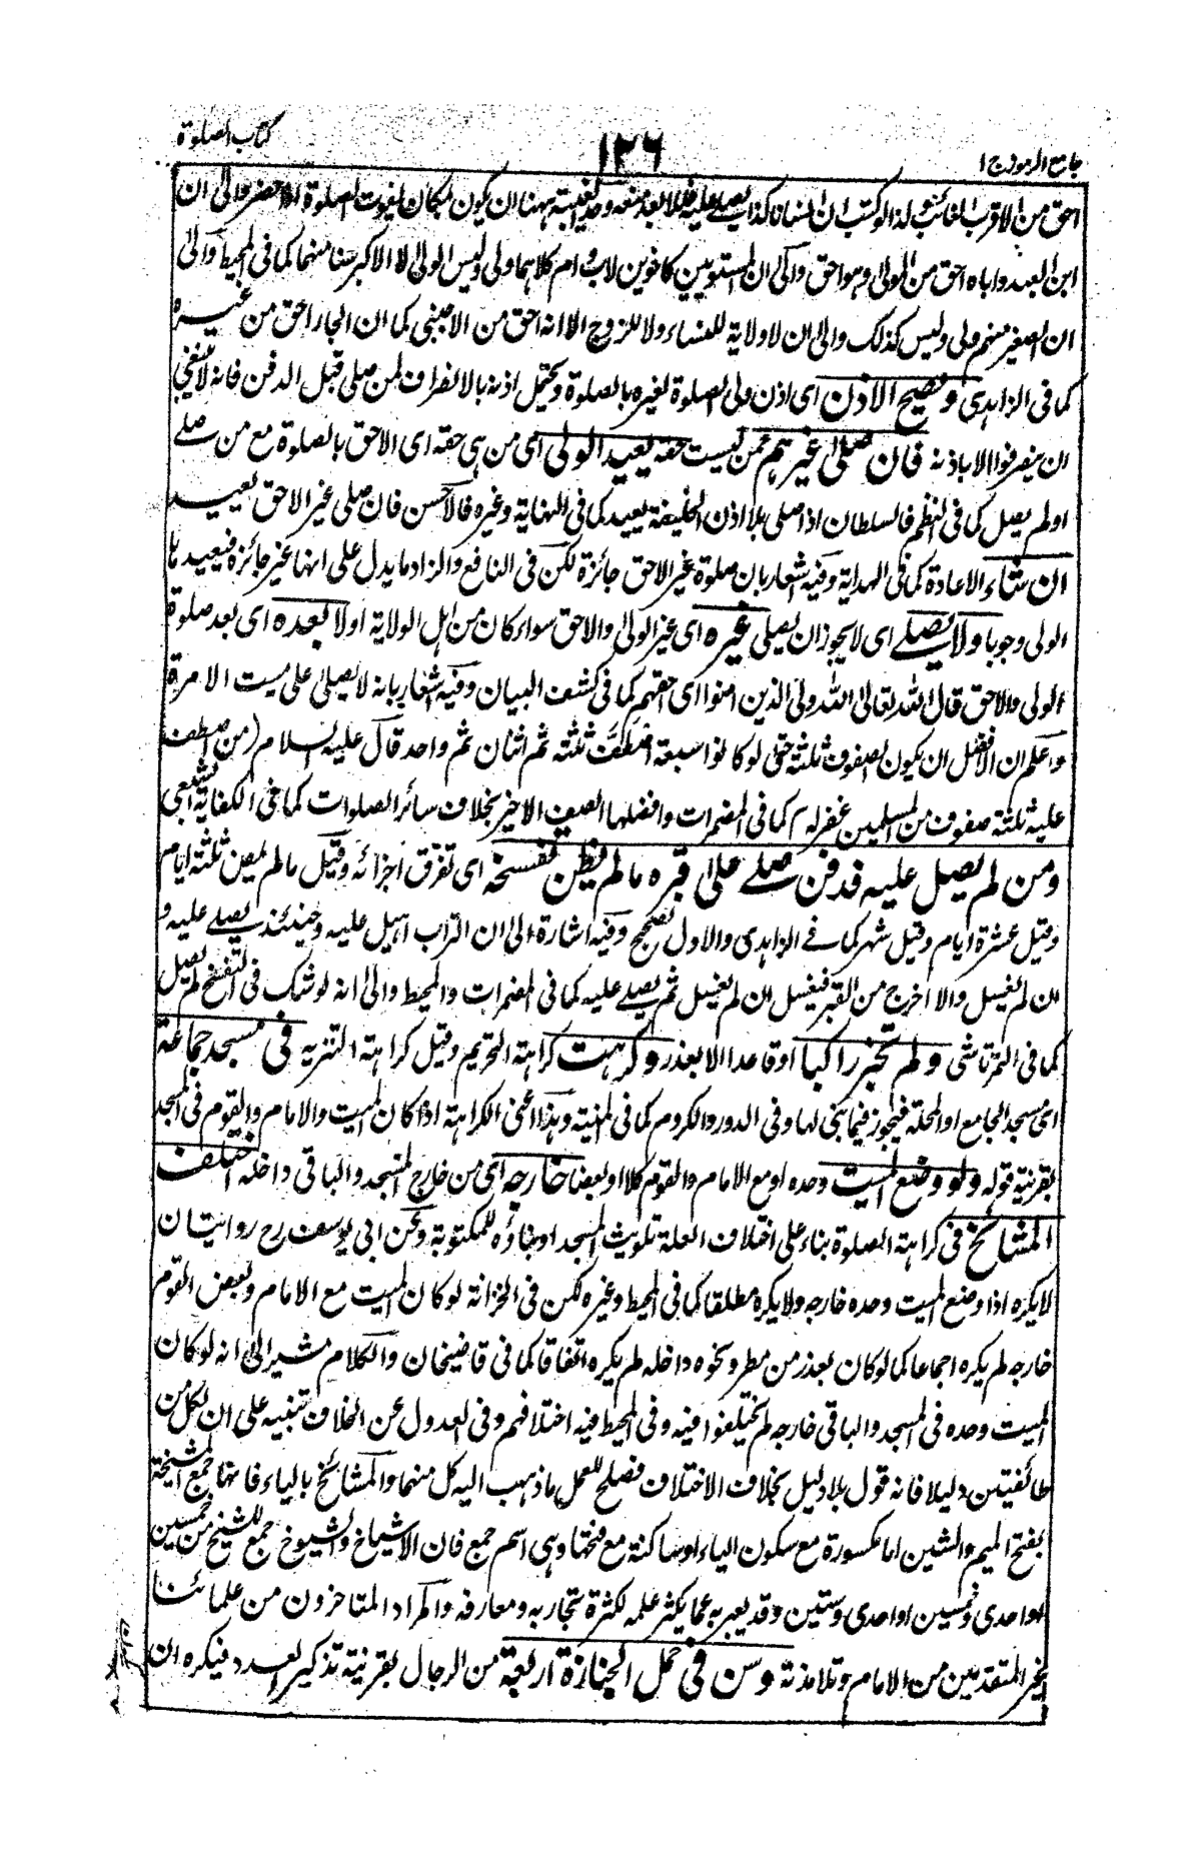 كتاب الصلوة
١٢٦
جامع الرموز ج ١
احق من الاقرب الغائب لذا لو كتب ان انسانا كذا يصلى عليه فللابعد منعه وحد الغيبة ههنا ان يكون بمكان يفوت الصلوة اذا حضر والى ان
ابن العبد واباه احق من المولى وهو احق والى ان المستويين كاخوين لاب وام كلاهما ولى وليس الولى الا الاكبر سنا منهما كما فى المحيط والى
ان الصغير منهم ولى وليس كذلك والى ان لا ولاية للنساء ولا للزوج الا انه احق من الاجنبى كما ان الجار احق من غيره
كما فى الزاهدى ويصح الاذن اى اذن ولى الصلوة لغيره بالصلوة ويحتمل اذنه بالانصراف لمن صلى قبل الدفن فانه لا ينبغى
ان ينصرفوا الا باذنه فان صلى غيرهم ممن ليست حقه يعيد الولى اى من هى حقه اى الاحق بالصلوة مع من صلى
او لم يصل كما فى النظم فالسلطان اذا صلى بلا اذن الخليفة يعيد كما فى النهاية وغيره فالاحسن فان صلى غير الاحق يعيد
ان شاء الاعادة كما فى الهداية وفيه اشعار بان صلوة غير الاحق جائزة لكن فى النافع والزاد ما يدل على انها غير جائزة فيعيد بها
الولى وجوبا ولا يصلى اى لا يجوز ان يصلى غيره اى غير الولى والاحق سواء كان من اهل الولاية اولا بعده اى بعد صلوة
الولى والاحق قال الله تعالى الله ولى الذين امنوا اى احقهم كما فى كشف البيان وفيه اشعار بانه لا يصلى على ميت الا مرة
واعلم ان الافضل ان يكون الصفوف ثلثة حتى لو كانوا سبعة اصطفت ثلثة ثم اثنان ثم واحد قال عليه السلام (من اصطف
عليه ثلثة صفوف من المسلمين غفر له) كما فى المضمرات وافضلها الصف الاخير بخلاف سائر الصلوات كما فى الكفاية الشعبى
ومن لم يصل عليه فدفن صلى على قبره ما لم يظن تفسخه اى تفرق اجزائه وقيل ما لم يمض ثلثة ايام
وقيل عشرة ايام وقيل شهر كما فى الزاهدى والاول الصحيح وفيه اشارة الى ان التراب اهيل عليه وحينئذ يصلى عليه و
ان لم يغسل والا اخرج من القبر فيغسل ان لم يغسل ثم يصلى عليه كما فى المضمرات والمحيط والى انه لو شك فى التفسخ لم يصل
كما فى التمرتاشى ولم تجز راكبا او قاعدا الا بعذر وكرهت كراهة التحريم وقيل كراهة التنزيه فى مسجد جماعة
اى مسجد الجامع او المحلة فيجوز فيما بنى لها وفى الدور والكروم كما فى المنية وهذا اعنى الكراهة اذا كان الميت والامام والقوم فى المسجد
بقرينة قوله ولو وضع الميت وحده او مع الامام والقوم كلا او بعضا خارجه اى من خارج المسجد والباقى داخله اختلف
المشائخ فى كراهة الصلوة بناء على اختلاف العلة تلويث المسجد او بناؤه للمكتوبة وعن ابى يوسف رح روايتان
لا يكره اذا وضع الميت وحده خارجه ولا يكره مطلقا كما فى المحيط وغيره لكن فى الخزانة لو كان الميت مع الامام وبعض القوم
خارجه لم يكره اجماعا كما لو كان بعذر من مطر ونحوه داخله لم يكره اتفاقا كما فى قاضيخان والكلام مشير الى انه لو كان
الميت وحده فى المسجد والباقى خارجه لم يختلفوا فيه وفى المحيط فيه اختلافهم وفى العدول عن الخلاف تنبيه على ان لكل من
طائفتين دليلا فانه قول بلا دليل بخلاف الاختلاف فصلح للعمل ما ذهب اليه كل منهما والمشائخ بالياء فانها جمع المشيخة
بفتح الميم والشين اما مكسورة مع سكون الياء او ساكنة مع فتحها وهى اسم جمع فان الاشياخ والشيوخ جمع الشيخ من خمسين
او احدى وخمسين او احدى وستين وقد يعبر به عما يكثر علمه لكثرة تجاربه ومعارفه والمراد المتاخرون من علمائنا
غير المتقدمين من الامام وتلامذته وسن فى حمل الجنازة اربعة من الرجال بقرينة تذكير العدد فيكره ان